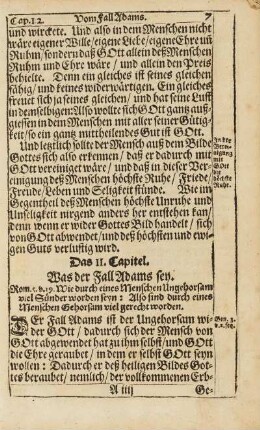 Cap. 1. 2. Vom Fall Adams. 7
und wirckete. Und also in dem Menschen nicht
wäre eigener Wille/ eigene Liebe/ eigene Ehre uñ
Ruhm/ sondern daß GOtt allein deß Menschen
Ruhm und Ehre wäre/ und allein den Preis
behielte. Denn ein gleiches ist seines gleichen
fähig/ und keines widerwärtigen. Ein gleiches
freuet sich seines gleichen/ und hat seine Lust
in demselbigen: Also wollte sich GOtt gantz auß-
giessen in dem Menschen mit aller seiner Gütig-
keit/ so ein gantz mittheilendes Gut ist GOtt.
Und letzlich sollte der Mensch auß dem Bilde
Gottes sich also erkennen/ daß er dadurch mit
GOtt vereiniget wäre/ und daß in dieser Ver-
einigung deß Menschen höchste Ruhe/ Friede/
Freude/ Leben und Seligkeit stünde. Wie im
Gegentheil deß Menschen höchste Unruhe und
Unseligkeit nirgend anders her entstehen kan/
denn wenn er wider Gottes Bild handelt/ sich
von GOtt abwendet/ und deß höchsten und ewi-
gen Guts verlustig wird.
In der
Verei-
nigung
mit
GOtt
die
höchste
Ruhe.
Das II. Capitel.
Was der Fall Adams sey.
Rom. 5. v. 19. Wie durch eines Menschen Ungehorsam
viel Sünder worden seyn: Also sind durch eines
Menschen Gehorsam viel gerecht worden.
DEr Fall Adams ist der Ungehorsam wi-
der GOtt/ dadurch sich der Mensch von
GOtt abgewendet hat zu ihm selbst/ und GOtt
die Ehre geraubet/ in dem er selbst GOtt seyn
wollen: Dadurch er deß heiligen Bildes Got-
tes beraubet/ nemlich/ der vollkommenen Erb-
Gen. 3.
A iiij
Ge-